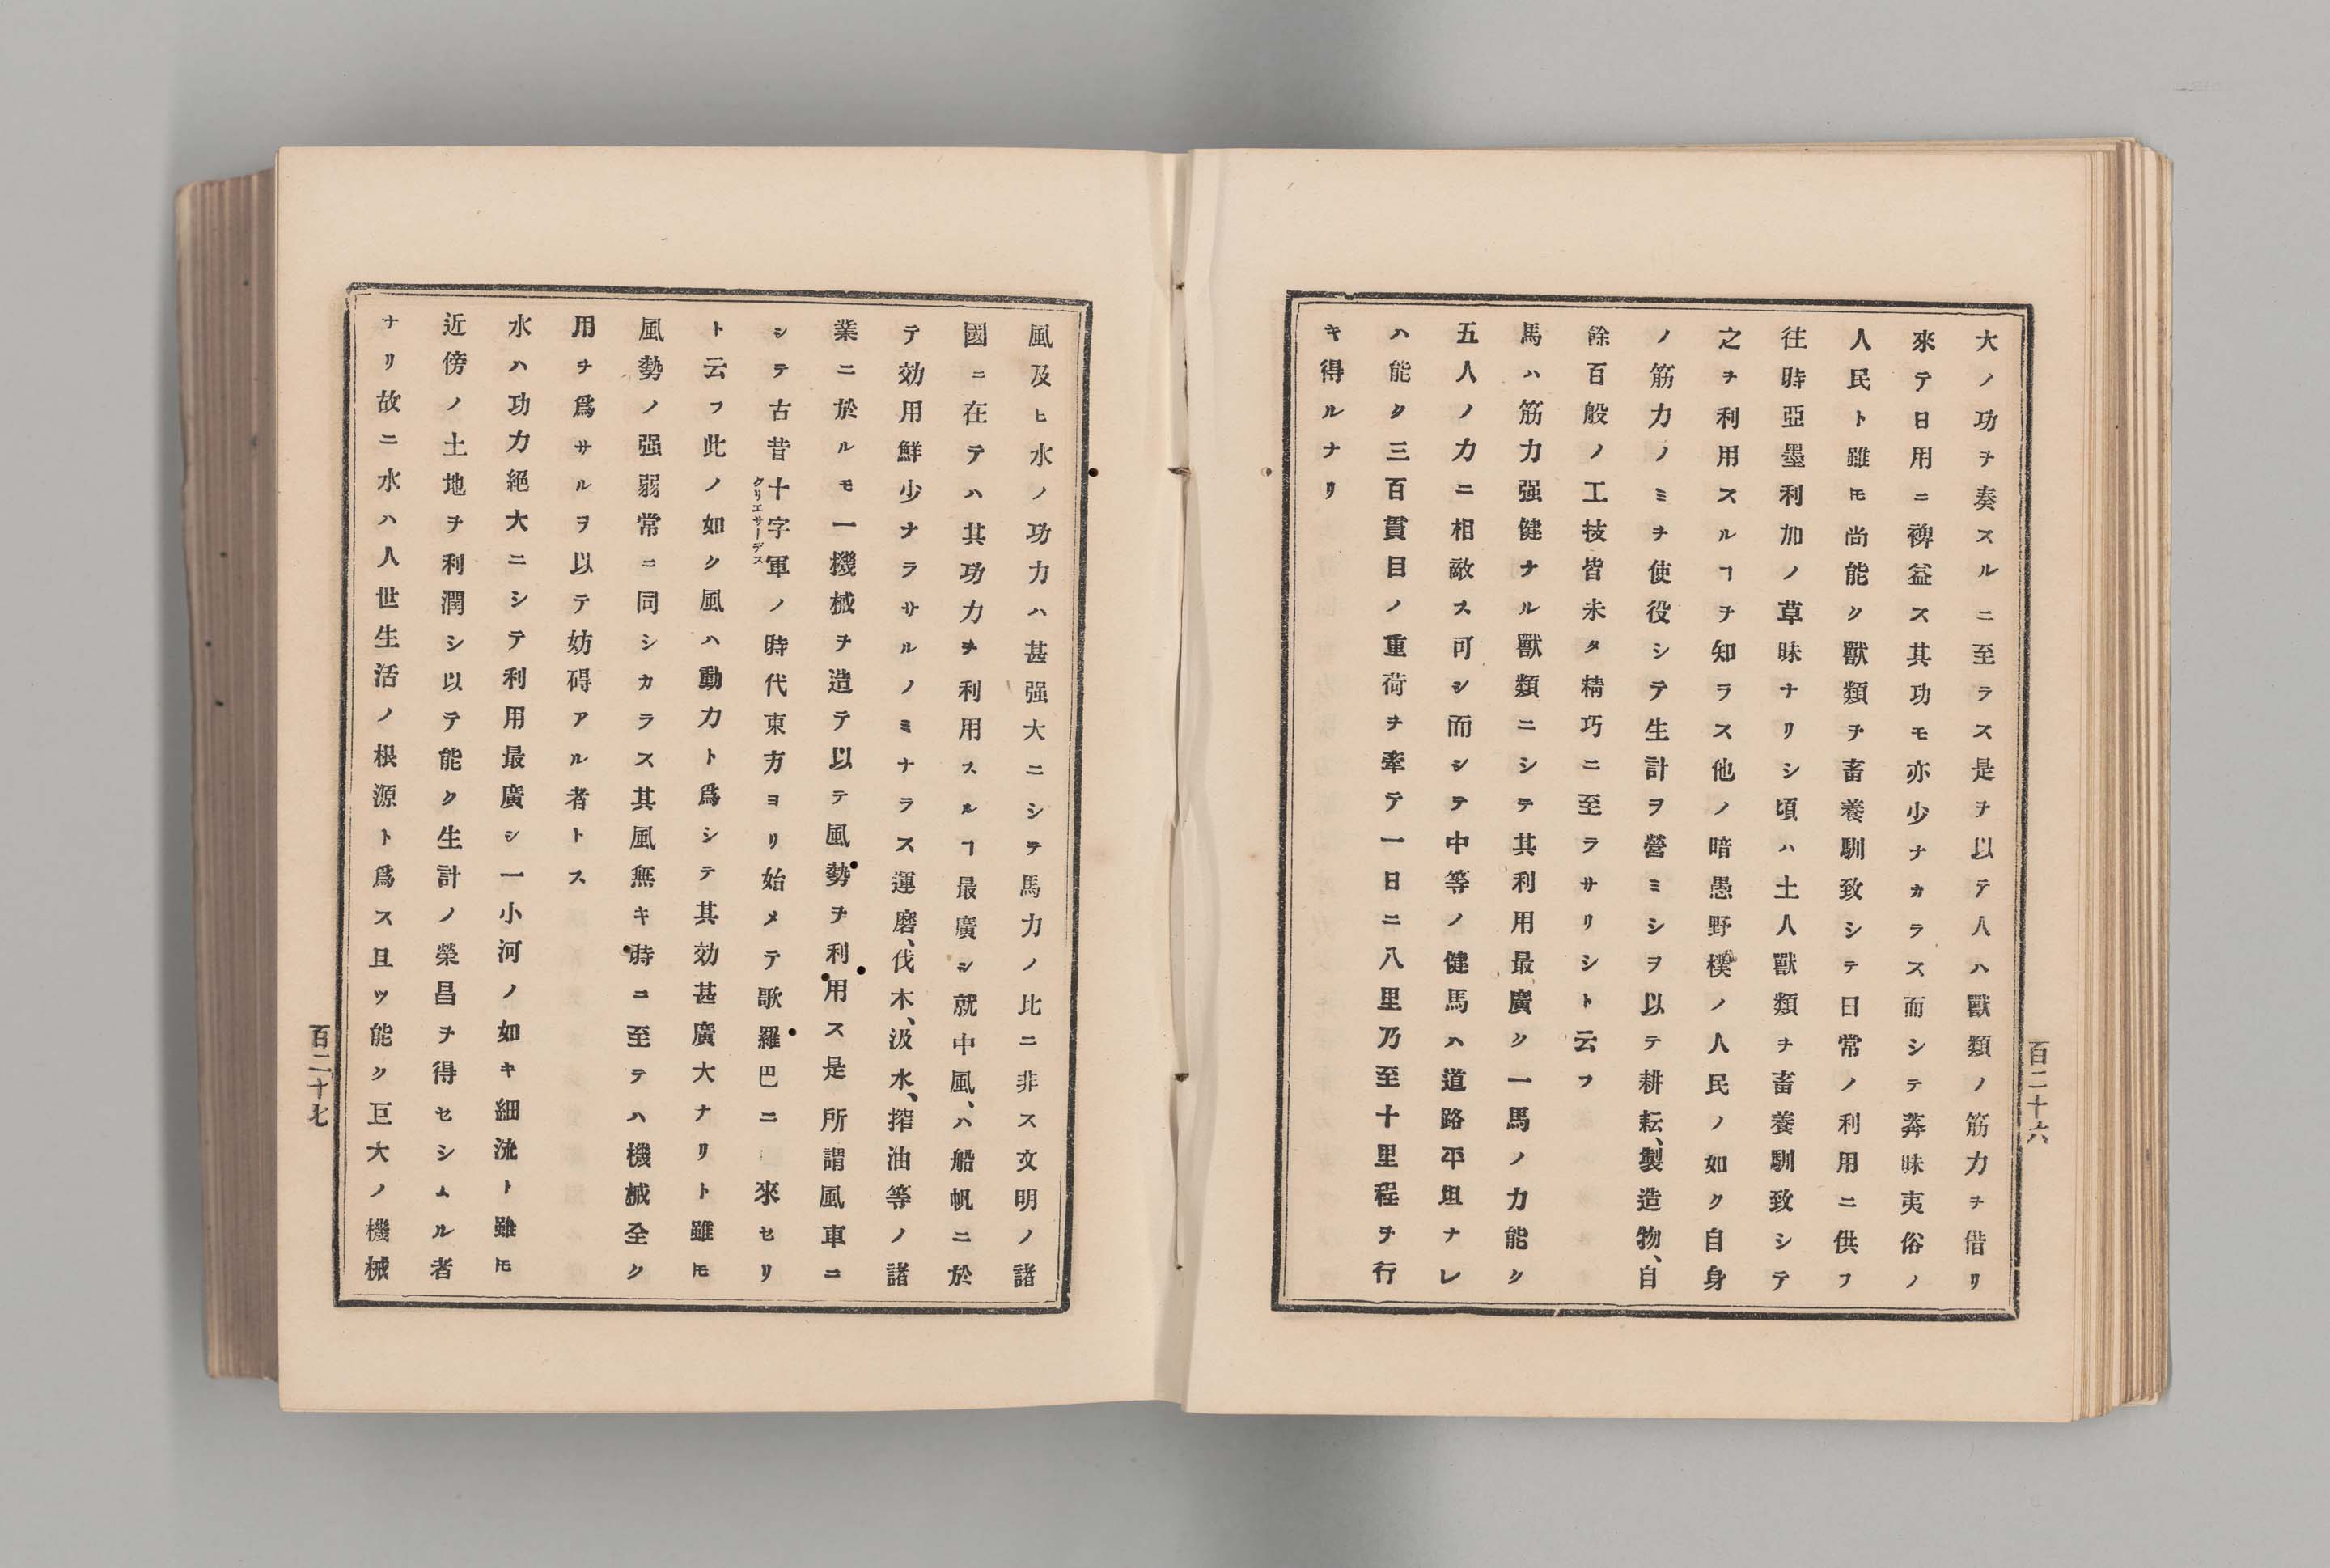 大ノ功ヲ奏スルニ至ラス是ヲ以テ人ハ獸類ノ筋力ヲ借リ
來テ日用ニ裨益ス其功モ亦少ナカラス而シテ莾昧夷俗ノ
人民ト雖𪜈尚能ク獸類ヲ畜養馴致シテ日常ノ利用ニ供フ
往時亞墨利加ノ草昧ナリシ頃ハ土人獸類ヲ畜養馴致シテ
之ヲ利用スルヿヲ知ラス他ノ暗愚野樸ノ人民ノ如ク自身
ノ筋力ノミヲ使役シテ生計ヲ營ミシヲ以テ耕耘、製造物、自
餘百般ノ工技皆未タ精巧ニ至ラサリシト云フ
馬ハ筋力强健ナル獸類ニシテ其利用最廣ク一馬ノ力能ク
五人ノ力ニ相敵ス可シ而シテ中等ノ健馬ハ道路平坦ナレ
ハ能ク三百貫目ノ重荷ヲ牽テ一日ニ八里乃至十里程ヲ行
キ得ルナリ
百二十六
風及ヒ水ノ功力ハ甚强大ニシテ馬力ノ比ニ非ス文明ノ諸
國ニ在テハ其功力ヲ利用スルヿ最廣シ就中風、ハ船帆ニ於
テ効用鮮少ナラサルノミナラス運磨、伐木、汲水、搾油等ノ諸
業ニ於ルモ一機械ヲ造テ以テ風勢ヲ利用ス是所謂風車ニ
シテ古昔十字軍ノ時代東方ヨリ始メテ歐羅巴ニ來セリ
クリエサーデス
ト云フ此ノ如ク風ハ動力ト爲シテ其効甚廣大ナリト雖𪜈
風勢ノ强弱常ニ同シカラス其風無キ時ニ至テハ機械全ク
用ヲ爲サルヲ以テ妨碍アル者トス
水ハ功力絕大ニシテ利用最廣シ一小河ノ如キ細流ト雖𪜈
近傍ノ土地ヲ利潤シ以テ能ク生計ノ榮昌ヲ得セシムル者
ナリ故ニ水ハ人世生活ノ根源ト爲ス且ツ能ク巨大ノ機械
百二十七